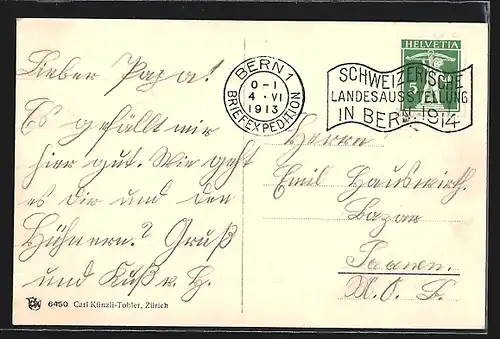 Lieber Papa!
Es gefällt mir
hier gut. Wie geht
es Dir und den
Hühnern? Gruß
und Kuß v. H.
6450 Carl Künzli-Tobler, Zürich
BERN 1
0-1
4·VI
1913
BRIEFEXPEDITION
SCHWEIZERISCHE
LANDESAUSSTELLUNG
IN BERN 1914
HELVETIA
5
Herrn
Emil Hauswirth.
Bazar
Saanen.